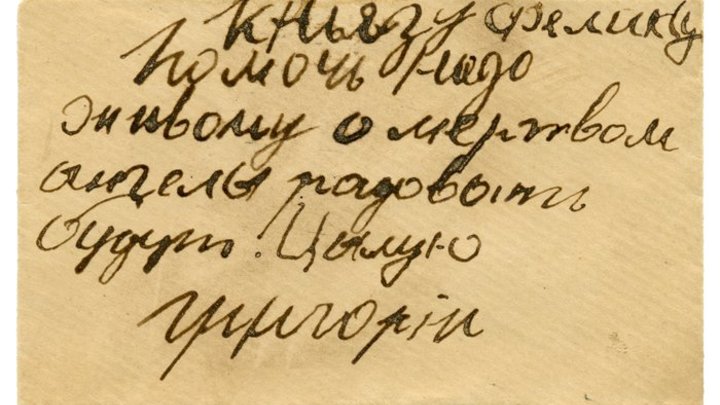 Князу Феликсу
Помочь надо
живому о мертвом
ангелы радовать
будут. Цалую
Григорiи